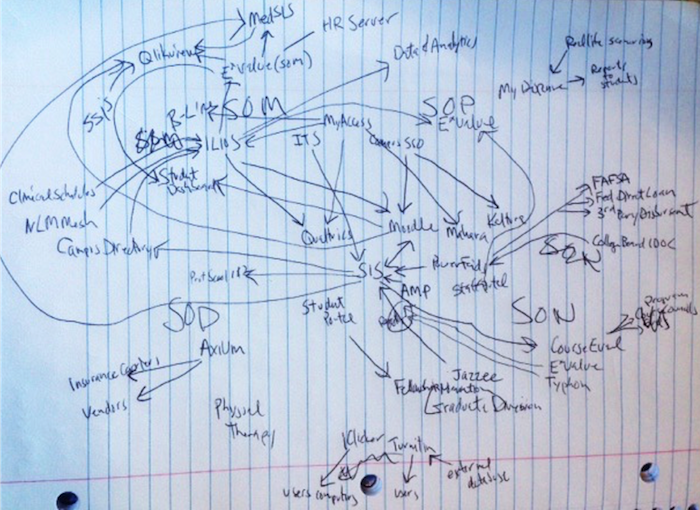 MedSIS
HR Server
Qlikview
E*Value (som)
Data & Analytics
Redlite scanning
My Dispense
Reports to students
SSIS
SOM
SOP
E*Value
MyAccess
ITS
ILIOS
Campus SSO
Student
Dashboard
Clinical Schedules
NLM Mesh
Campus Directory
Qualtrics
Moodle
Mahara
Kaltura
FAFSA
Fed Direct Loan
3rd Party Disbursement
College Board IDOC
SIS
PowerFaids
AMP
Student
Portal
SON
SOD
SON
Axium
Insurance Carriers
Vendors
Physical
Therapy
Course Eval
E*Value
Typhon
program
Jazzee
Graduate Division
Clicker
Turnitin
users computers
users
external
database